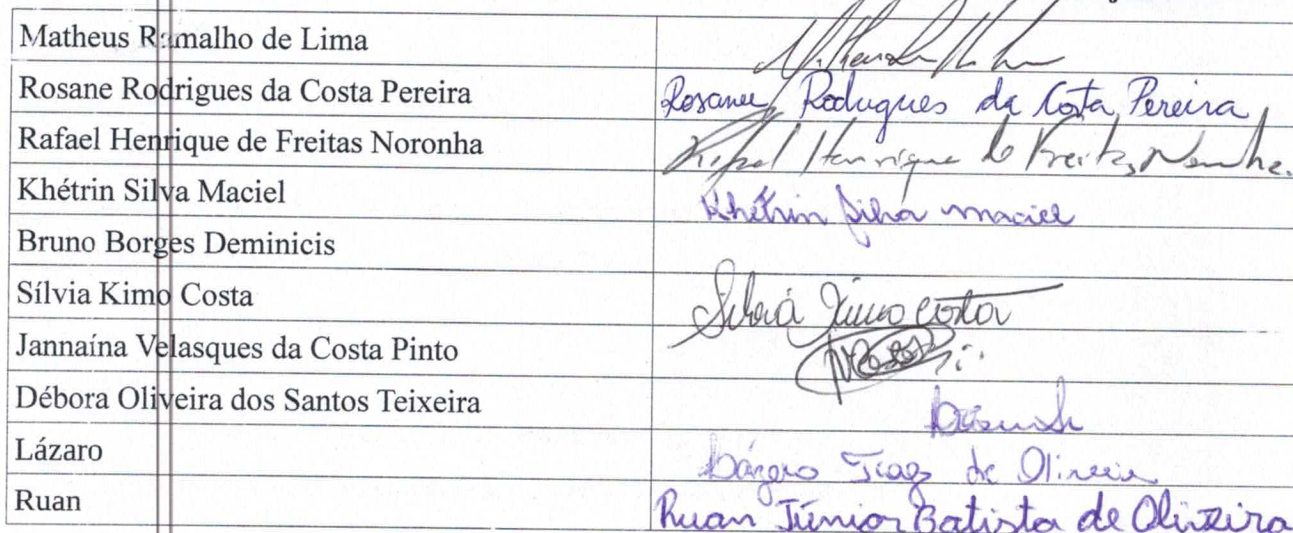 Matheus Ramalho de Lima
Rosane Rodrigues da Costa Pereira Rosane Rodrigues da Costa Pereira
Rafael Henrique de Freitas Noronha Rafael Henrique de Freitas Noronha.
Khétrin Silva Maciel Khétrin Silva Maciel
Bruno Borges Deminicis
Sílvia Kimo Costa Silvia Kimo Costa
Jannaína Velasques da Costa Pinto
Débora Oliveira dos Santos Teixeira
Lázaro Lázaro Tiago de Oliveira
Ruan Ruan Júnior Batista de Oliveira